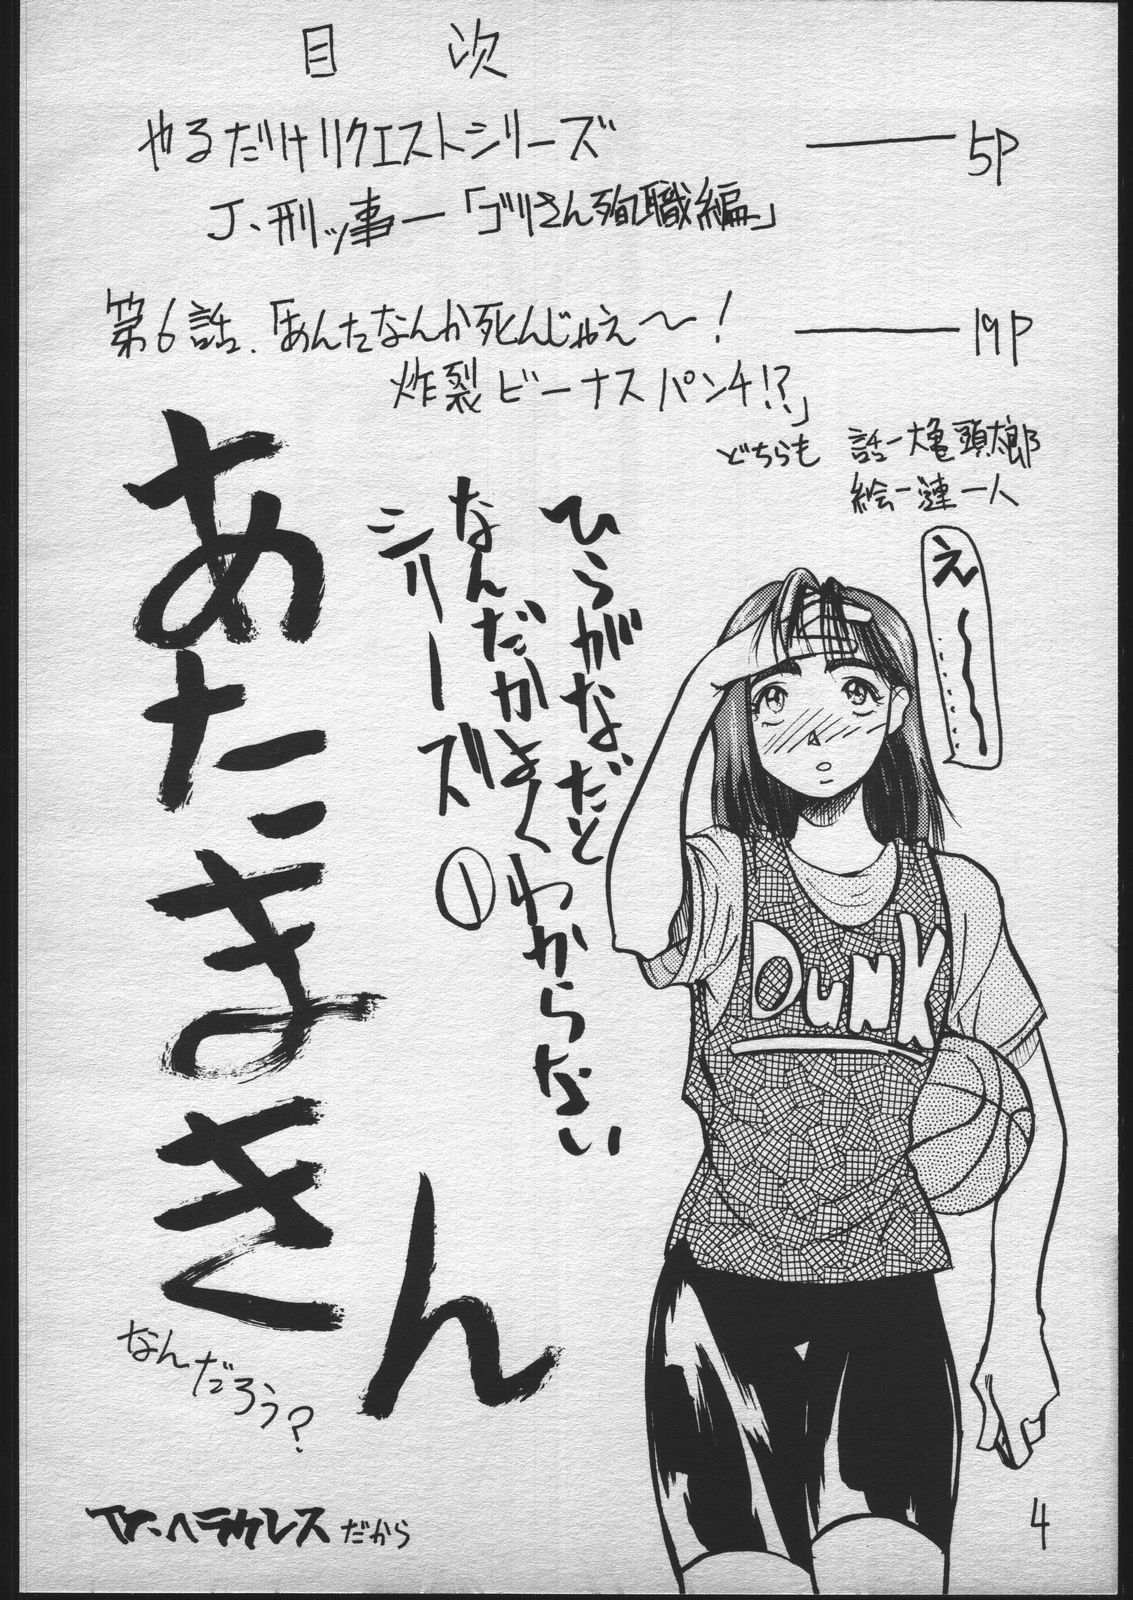 目 次
やるだけリクエストシリーズ ―― 5P
J、刑ッ事―「ゴリさん殉職編」
第6話、「あんたなんか死んじゃえ～! ―― 19P
炸裂ビーナスパンチ!?」
どちらも 話―大亀頭太郎
絵―漣一人
え～
ひらがなだと
わからない
なんだかよく
シリーズ
①
あたまさん
なんだろう?
DUNK
ヘラクレスだから
4